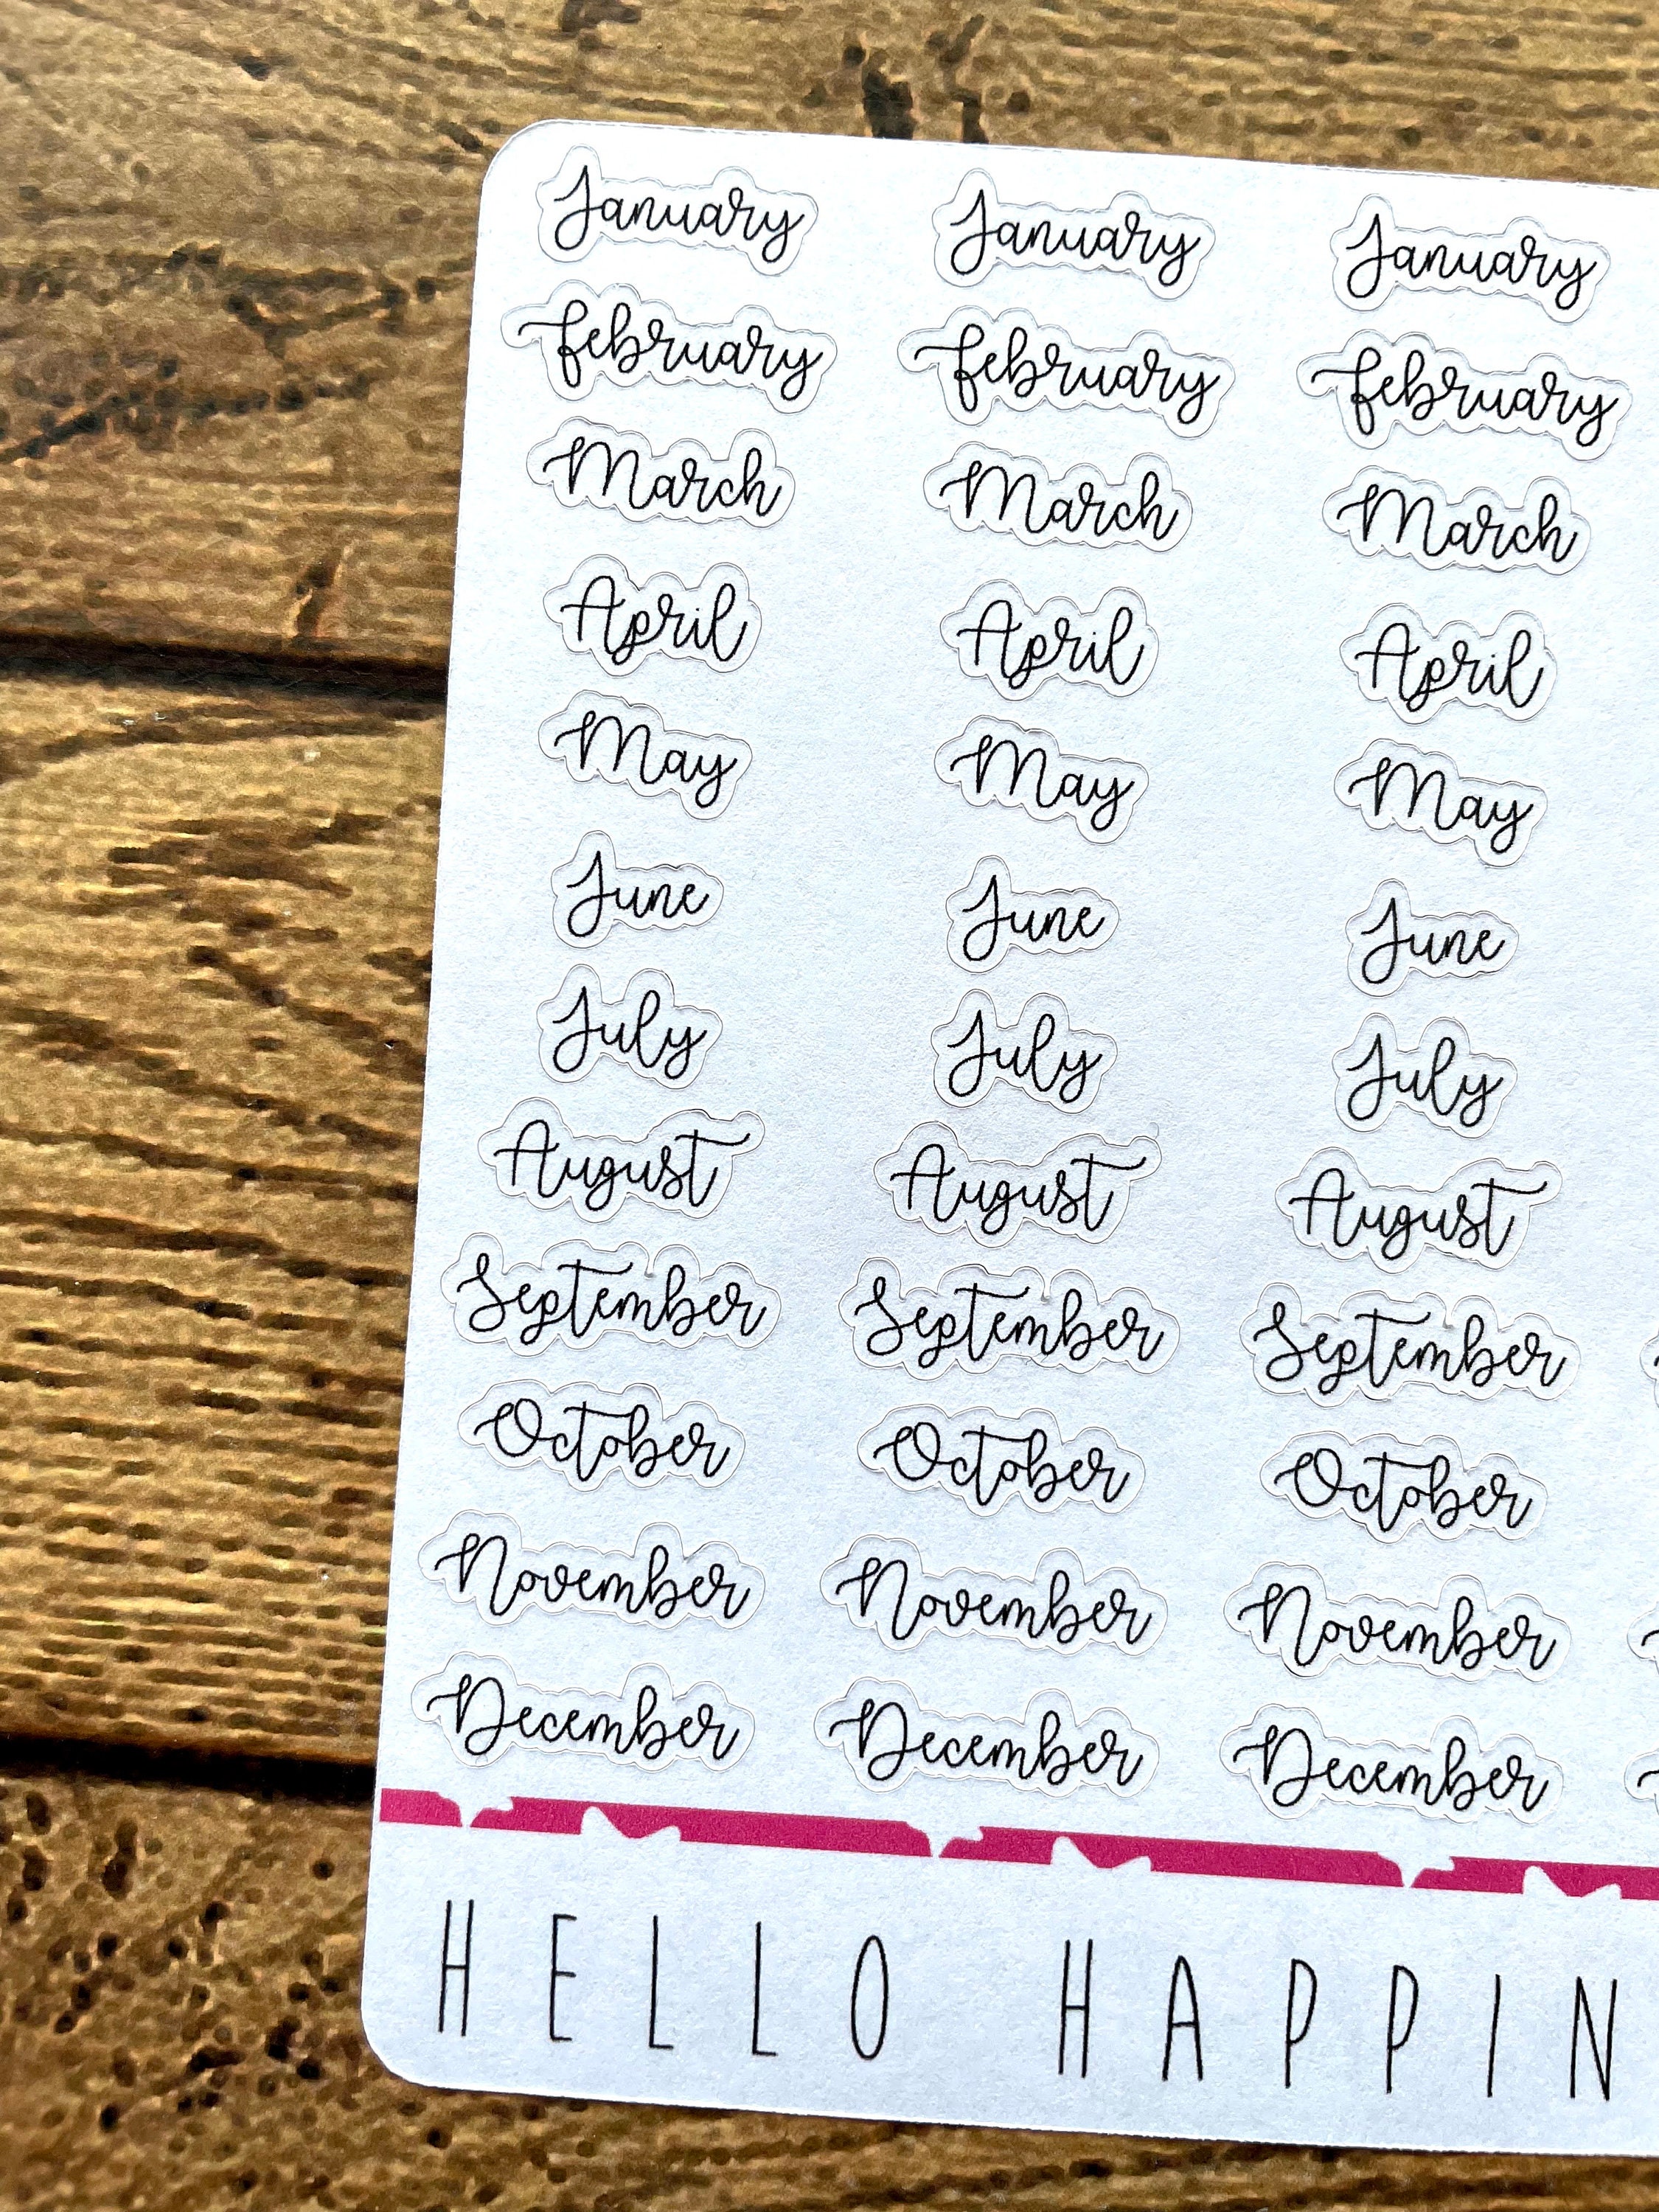 January January January
February February February
March March March
April April April
May May May
June June June
July July July
August August August
September September September
October October October
November November November
December December December
HELLO HAPPIN